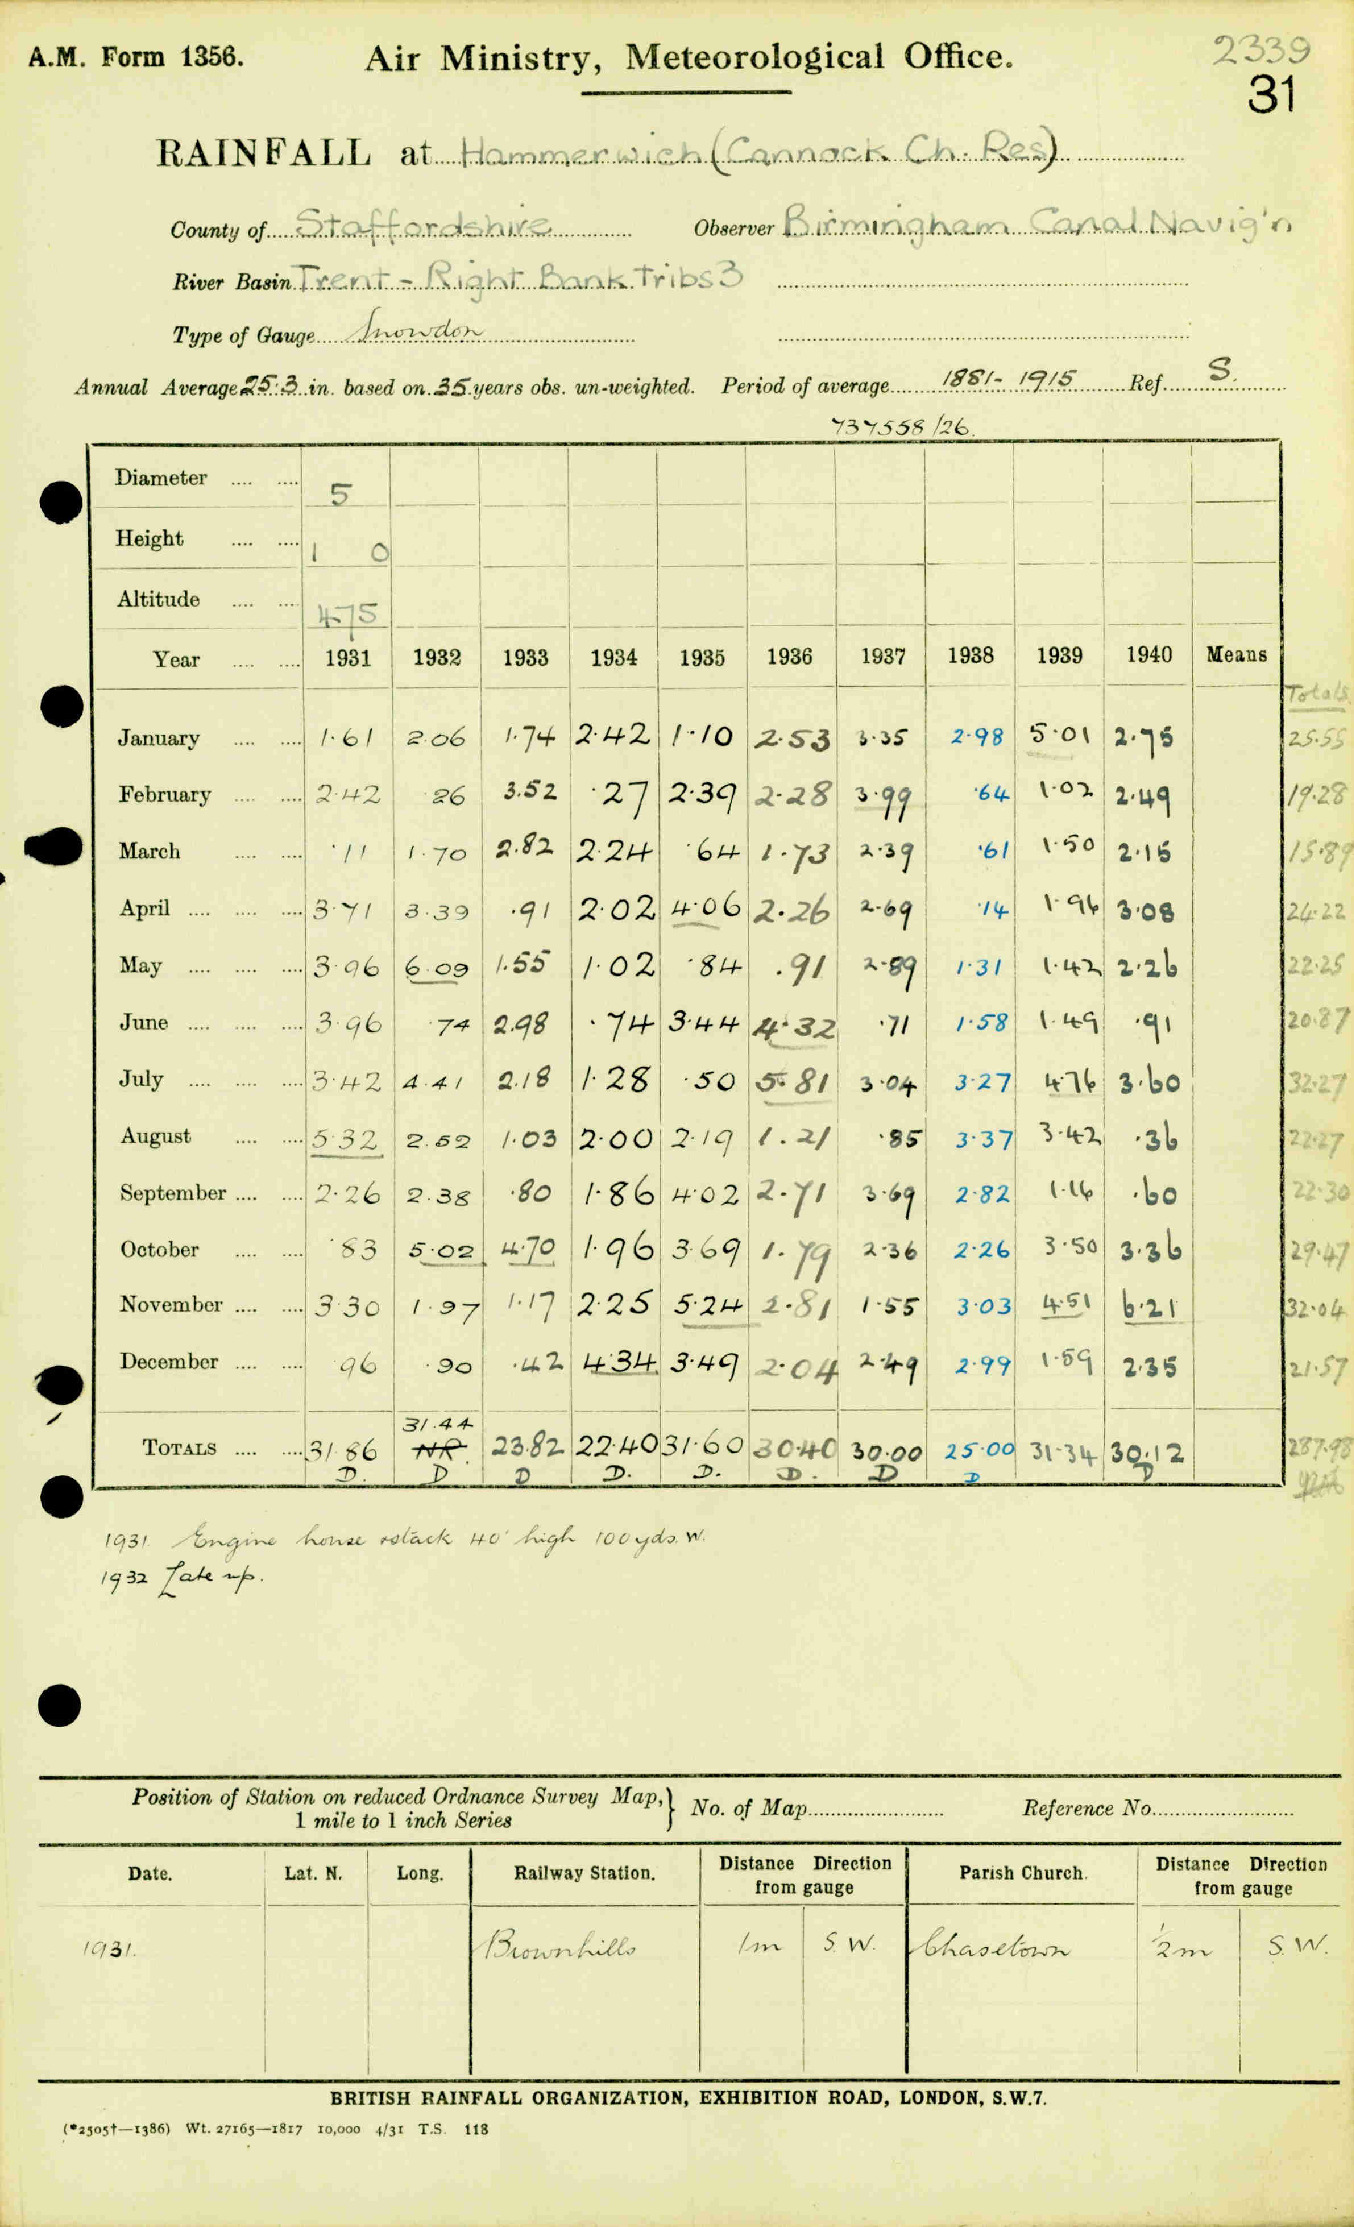 A.M. Form 1356. Air Ministry, Meteorological Office. 2339
31
RAINFALL at Hammerwich (Cannock Ch. Res)
County of Staffordshire Observer Birmingham Canal Navig'n
River Basin Trent - Right Bank Tribs 3
Type of Gauge Snowdon
Annual Average 25.3 in. based on 35 years obs. un-weighted. Period of average 1881-1915 Ref. S.
737558/26.
Diameter 5
Height 1 0
Altitude 475
Year 1931 1932 1933 1934 1935 1936 1937 1938 1939 1940 Means
Totals
January 1.61 2.06 1.74 2.42 1.10 2.53 3.35 2.98 5.01 2.75 25.55
February 2.42 26 3.52 .27 2.39 2.28 3.99 .64 1.02 2.49 19.28
March .11 1.70 2.82 2.24 .64 1.73 2.39 .61 1.50 2.15 15.89
April 3.71 3.39 .91 2.02 4.06 2.26 2.69 .14 1.96 3.08 24.22
May 3.96 6.09 1.55 1.02 .84 .91 2.89 1.31 1.42 2.26 22.25
June 3.96 .74 2.98 .74 3.44 4.32 .71 1.58 1.49 .91 20.87
July 3.42 4.41 2.18 1.28 .50 5.81 3.04 3.27 4.76 3.60 32.27
August 5.32 2.52 1.03 2.00 2.19 1.21 .85 3.37 3.42 .36 22.27
September 2.26 2.38 .80 1.86 4.02 2.71 3.69 2.82 1.16 .60 22.30
October .83 5.02 4.70 1.96 3.69 1.79 2.36 2.26 3.50 3.36 29.47
November 3.30 1.97 1.17 2.25 5.24 2.81 1.55 3.03 4.51 6.21 32.04
December 96 .90 .42 4.34 3.49 2.04 2.49 2.99 1.59 2.35 21.57
31.44
TOTALS 31.86 NR. 23.82 22.40 31.60 30.40 30.00 25.00 31.34 30.12 287.98
D. D D D. D. D. D D D
1931. Engine house stack 40' high 100 yds. W.
1932 Late up.
Position of Station on reduced Ordnance Survey Map, } No. of Map Reference No.
1 mile to 1 inch Series
Date. Lat. N. Long. Railway Station. Distance Direction from gauge Parish Church. Distance Direction from gauge
1931. Brownhills 1m S.W. Chasetown ½m S.W.
BRITISH RAINFALL ORGANIZATION, EXHIBITION ROAD, LONDON, S.W.7.
(*2505†—1386) Wt. 27165—1817 10,000 4/31 T.S. 118